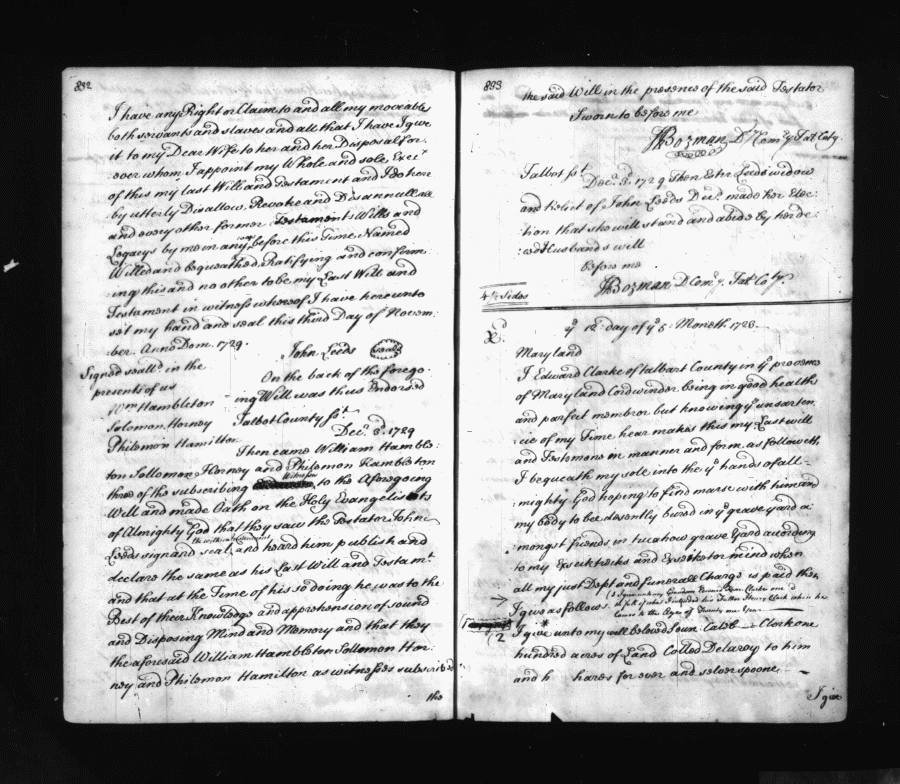 832
I have any Right or Claim to and all my moveable
both servants and slaves and all that I have I give
it to my Dear Wife to her and her Disposal for-
ever whom I appoint my Whole and sole Execx
of this my last Will and Testament and I do here
by utterly Disallow Revoke and Disannull all
and every other former Testaments Wills and
Legacys by me in any before this Time Named
Willed and bequeathed Ratifying and confirm
ing this and no other to be my Last Will and
Testament in witness whereof I have hereunto
set my hand and seal this third Day of Novem
ber Anno Dom. 1729.
John Leeds seal
Signed seald in the
presents of us
Wm Hambleton
Solomon Horney
Philemon Hamilton
On the back of the forego-
ing Will was thus Endorsed
Talbot County sst
Decr 3d 1729
Then came William Hamble:
ton Sollomon Horney and Philemon Hambleton
three of the subscribing Witnesses to the Aforegoing
Will and made Oath on the Holy Evangelists
of Almighty God that they saw the Testator John
Leeds sign and seal and heard him publish and
declare the same as his Last Will and Testamt
and that at the Time of his so doing he was to the
Best of their Knowledge and apprehension of sound
and Disposing Mind and Memory and that they
the aforesaid William Hambleton Sollomon Hor:
ney and Philemon Hamilton as witnesses subscribed
the
833
the said Will in the presence of the said Testator
Sworn to before me
Bozman Dty Comry Talt Coty.
Talbot sst
Decr 3d 1729 Then Ester Leeds widow
and Relict of John Leeds Decd made her Elec:
tion that she will stand and abide by her de:
:ced Husbands will
before me
Bozman D Comy. Talt Coty.
4 1/2 Sides
ye 12 day of ye 5 Moneth 1728.
Maryland
I Edward Clarke of talbart County in ye provenc
of Maryland Cordwinder being in good health
and parfect membror but knowing ye unsarten
:cie of my Time hear makes this my Last will
and Testement in manner and form as followeth
I bequeath my sole into the ye hands of all-
mighty God hoping to find marse with him and
my body to bee desently bured in ye grave yard a:
mongst friends in tucahow grave Yard according
to my Exseksterks and Exsekstor mind when
all my just Dept and funerall Charge is paid then
I give as follows.
I give unto my well beloved Soun Caleb Clark one
hundred acres of Land Colled Delaroy to him
and h hares for ever and selver spoone
I give